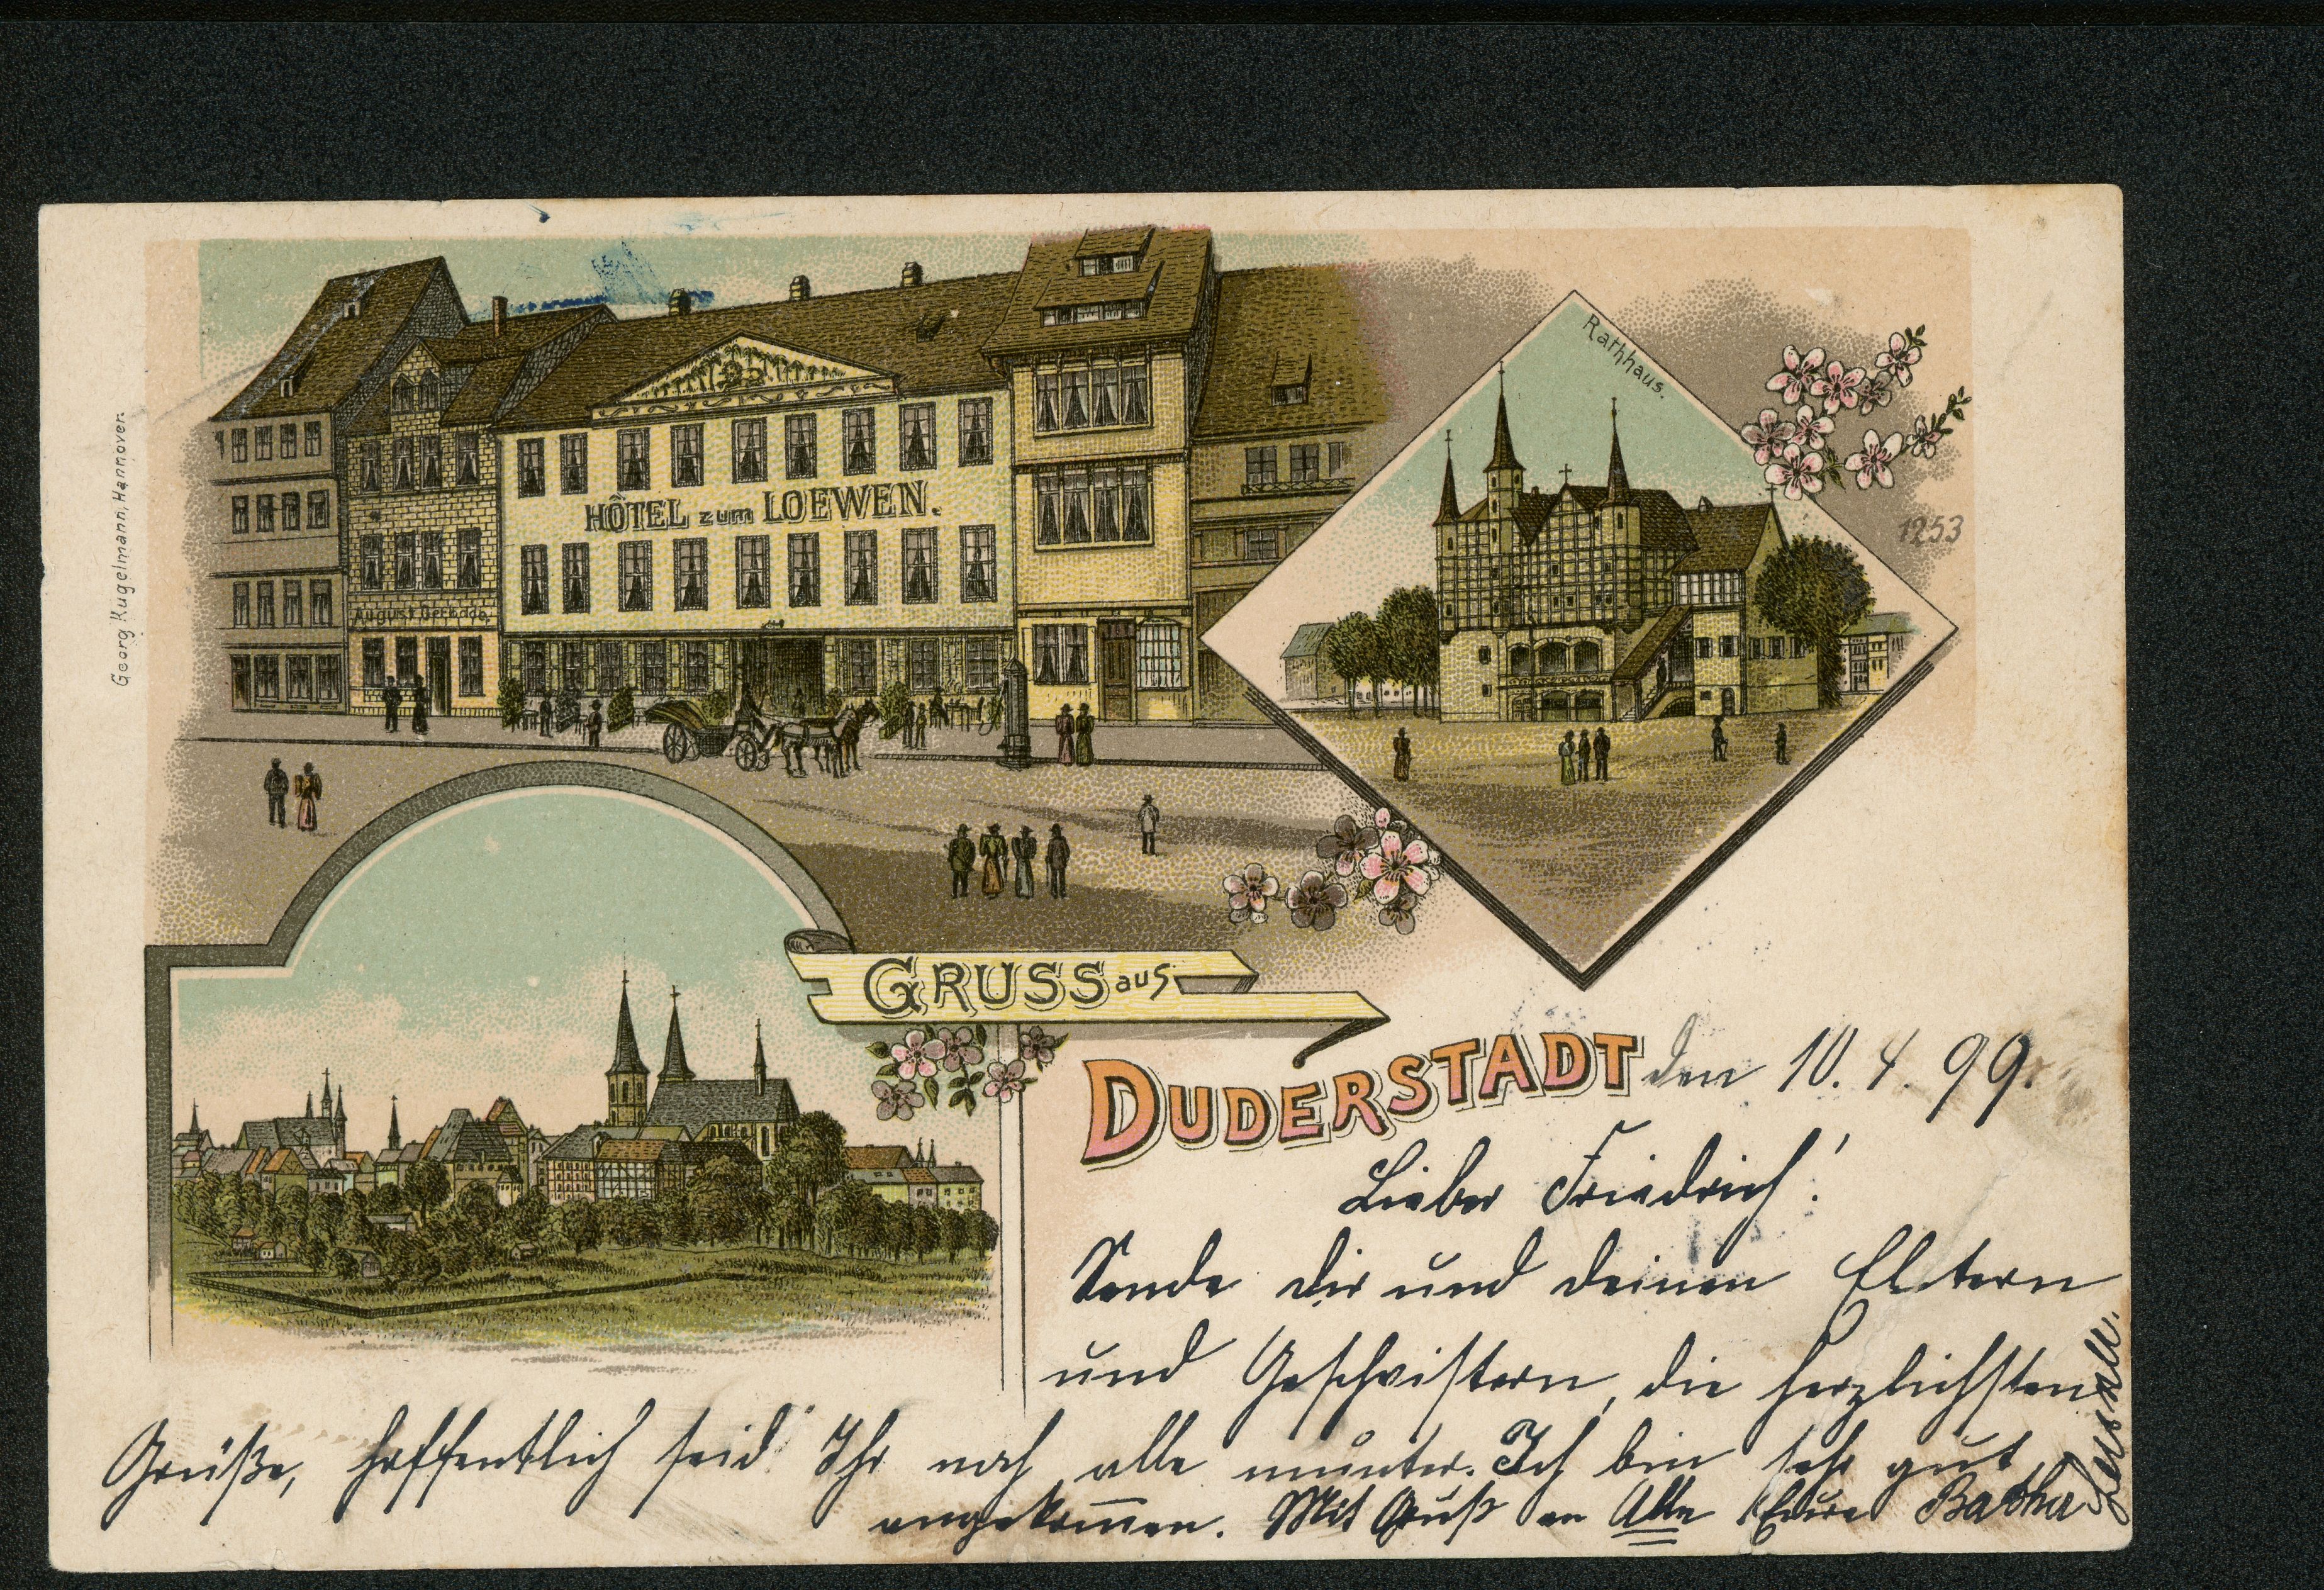 Georg Kugelmann, Hannover.
August Gerhddo.
HÔTEL zum LOEWEN.
Rathhaus.
1253
GRUSS aus
DUDERSTADT den 10. 4. 99.
Lieber Friedrich!
Sende dir und deinen Eltern
und Geschwistern, die herzlichsten
Grüße, hoffentlich seid Ihr noch alle munter. Ich bin sehr gut
angekom̅en. Mit Gruß an Alle Eure